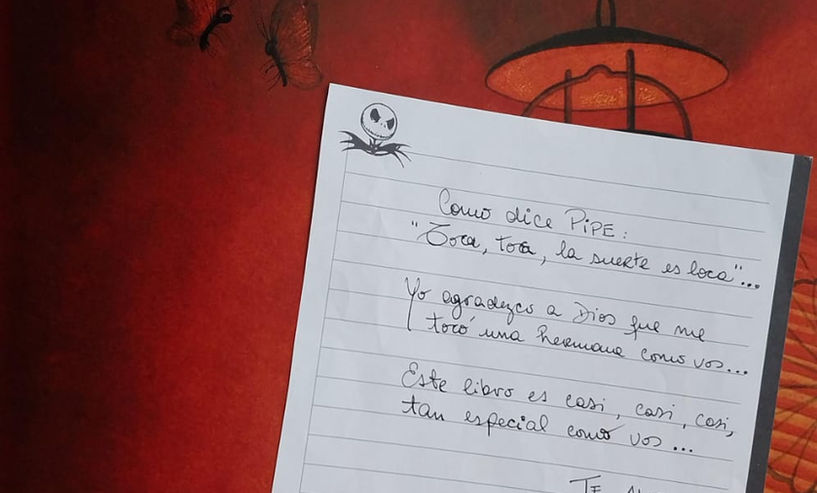 Como dice PIPE:
"Toca, toca, la suerte es loca"...
Yo agradezco a Dios que me
tocó una hermana como vos...
Este libro es casi, casi, casi,
tan especial como vos...
TE